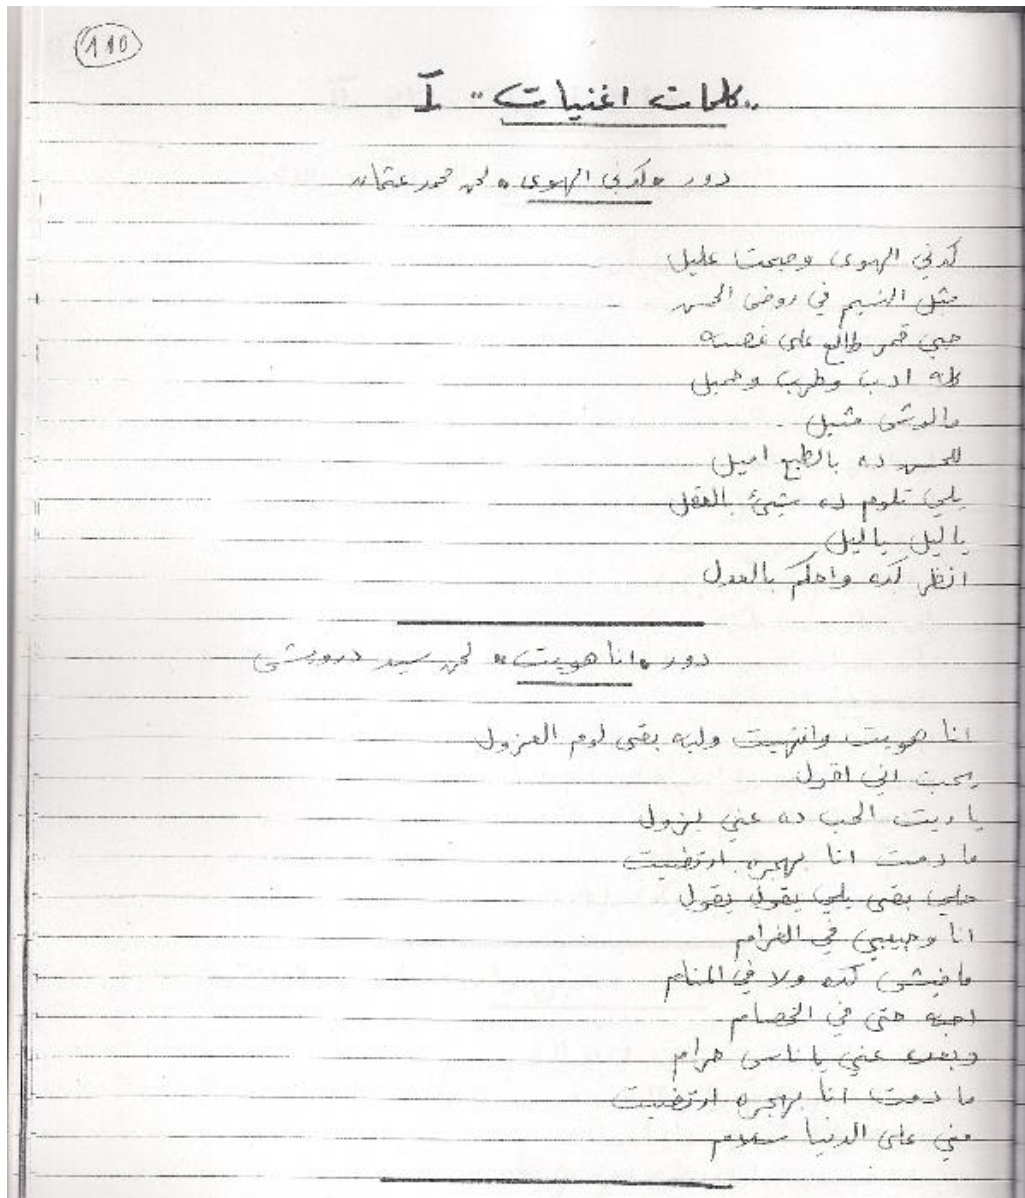 110
"كلمات اغنيات" I
دور "كدني الهوى" لحن محمد عثمان
كدني الهوى وصبحت عليل
مثل النسيم في روض الحسن
حبي قمر طالع على غصنه
كله ادب وطرب وجميل
مالوش مثيل
للحسن ده بالطبع اميل
يلي تلوم ده شيئ بالعقل
ياليل ياليل
انظر كده واحكم بالعدل
دور "انا هويت" لحن سيد درويش
انا هويت وانتهيت وليه بقى لوم العزول
يحب اني اقول
ياريت الحب ده عني يزول
ما دمت انا بهجره ارتضيت
خلي بقى يلي يقول يقول
انا وحبيبي في الغرام
مافيش كده ولا في المنام
احبه حتى في الخصام
وبعده عني ياناس حرام
ما دمت انا بهجره ارتضيت
مني على الدنيا سلام